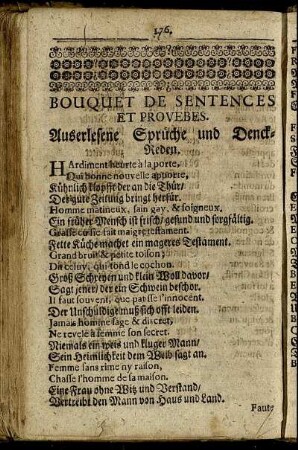 176.
BOUQUET DE SENTENCES
ET PROVEBES.
Auserlesene Sprüche und Denck-
Reden.
HArdiment heurte à la porte,
Qui bonne nouvelle apporte,
Kühnlich klopfft der an die Thür/
Der gute Zeitung bringt herfür.
Homme matineux, sain gay, & soigneux.
Ein früher Mensch ist frisch/ gesund und sorgfältig.
Grasse cuisine fait maigre testament.
Fette Küche machet ein mageres Testament.
Grand bruit & petite toison;
Dit celuy, qui tond le cochon.
Groß Schreyen und klein Woll davor/
Sagt jener/ der ein Schwein beschor.
Il faut souvent, que patisse l'innocent.
Der Unschüldige muß sich offt leiden.
Jamais homme sage & discret,
Ne revele à femme son secret.
Niemals ein weis und kluger Mann/
Sein Heimlichkeit dem Weib sagt an.
Femme sans rime ny raison,
Chasse l'homme de sa maison.
Eine Frau ohne Witz und Verstand/
Vertreibt den Mann von Haus und Land.
Faute